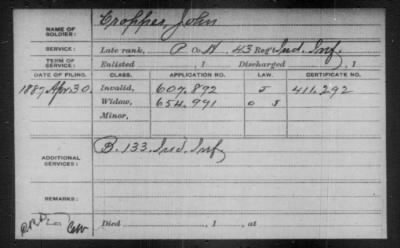 NAME OF SOLDIER: Cropper, John
SERVICE: Late rank, P Co. H, 43 Reg't Ind. Inf.
TERM OF SERVICE: Enlisted , 1 Discharged , 1
DATE OF FILING. CLASS. APPLICATION NO. LAW. CERTIFICATE NO.
1887 Apr. 30. Invalid, 607.892 J 411.292
Widow, 654.991
Minor,
ADDITIONAL SERVICES: B. 133. Ind. Inf
REMARKS:
Died , 1 , at